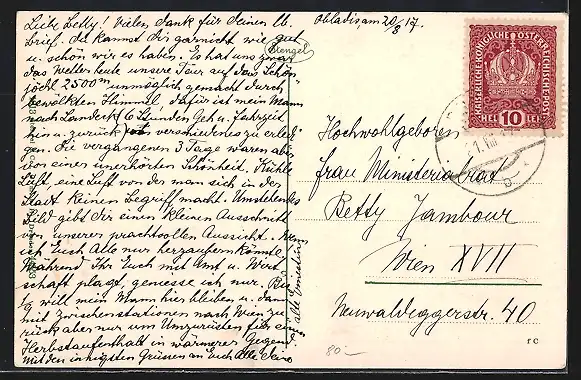 Liebe Betty! Vielen Dank für Deinen lb.
Brief. Du kannst Dir garnicht wie gut
u. schön wir es haben. Es hat uns zwar
das Wetter heute unsere Tour auf das Schön
jöchl 2500m unmöglich gemacht durch
bewölkten Himmel, dafür ist mein Mann
nach Landeck (6 Stunden Geh u. Fahrzeit
hin u. zurück) verschiedenes zu erledi-
gen. Die vergangenen 3 Tage waren aber
von einer unerhörten Schönheit. Kühle
Luft, eine Luft von der man sich in der
Stadt keinen Begriff macht. Umstehendes
Bild gibt Dir einen kleinen Ausschnitt
von unserer prachtvollen Aussicht.
ich Euch Alle nur herzaubern könnte
Während Ihr Euch mit Amt u. Wirt
schaft plagt, geniesse ich nur. Bis
will mein Mann hier bleiben u. dann
mit Zwischenstationen nach Wien zu
rück aber nur um Umzurüsten für eine
Herbstaufenthalt in wärmerer Gegend
Mit den innigsten Grüssen an Euch Alle Deine
alte
Stengel
Obladis, am 20/8 17.
KAISERLICHE KÖNIGLICHE ÖSTERREICHISCHE POST
HEL 10 LER
Hochwohlgeboren
Frau Ministerialrat
Betty Jambour
Wien XVII
Neuwaldeggerstr. 40
80.–
rc